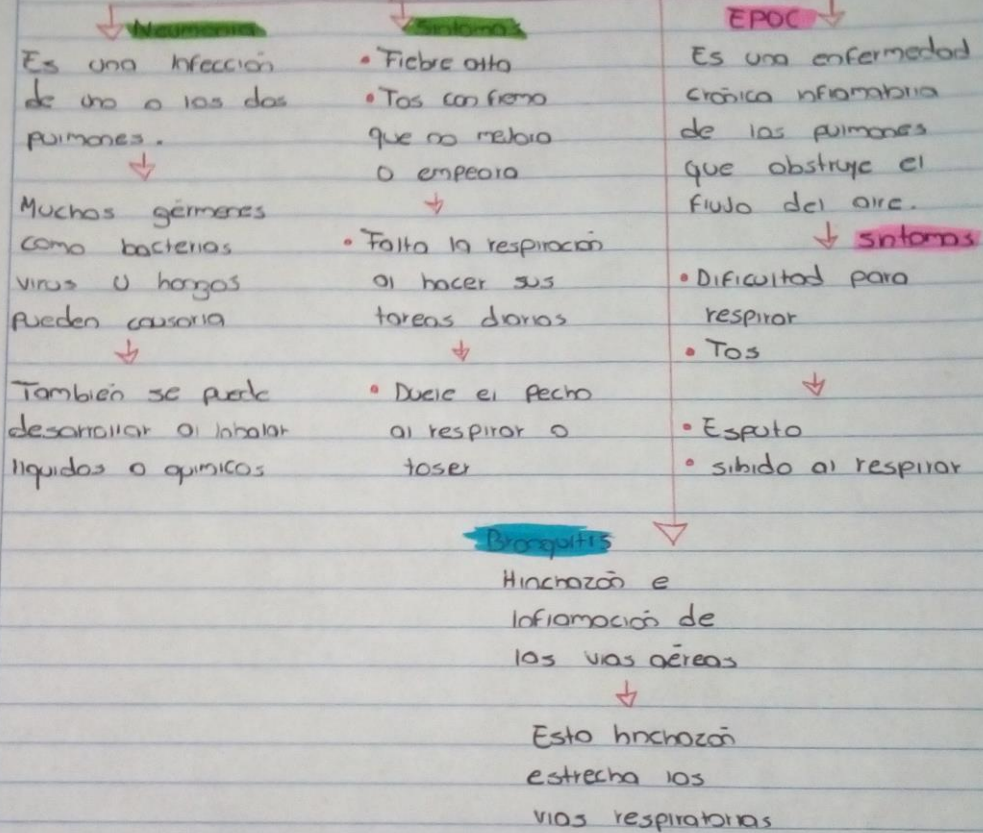 Neumonia
Es una infección
de uno o los dos
pulmones.
Muchos gérmenes
como bacterias
virus u hongos
pueden causarla
También se puede
desarrollar al inhalar
liquidos o quimicos
Sintomas
• Fiebre alta
• Tos con flema
que no mejora
o empeora
• Falta la respiración
al hacer sus
tareas diarias
• Duele el pecho
al respirar o
toser
EPOC
Es una enfermedad
crónica inflamatoria
de los pulmones
que obstruye el
flujo del aire.
sintomas
• Dificultad para
respirar
• Tos
• Esputo
• silbido al respirar
Bronquitis
Hinchazón e
inflamación de
las vias aéreas
Esta hinchazón
estrecha las
vias respiratorias